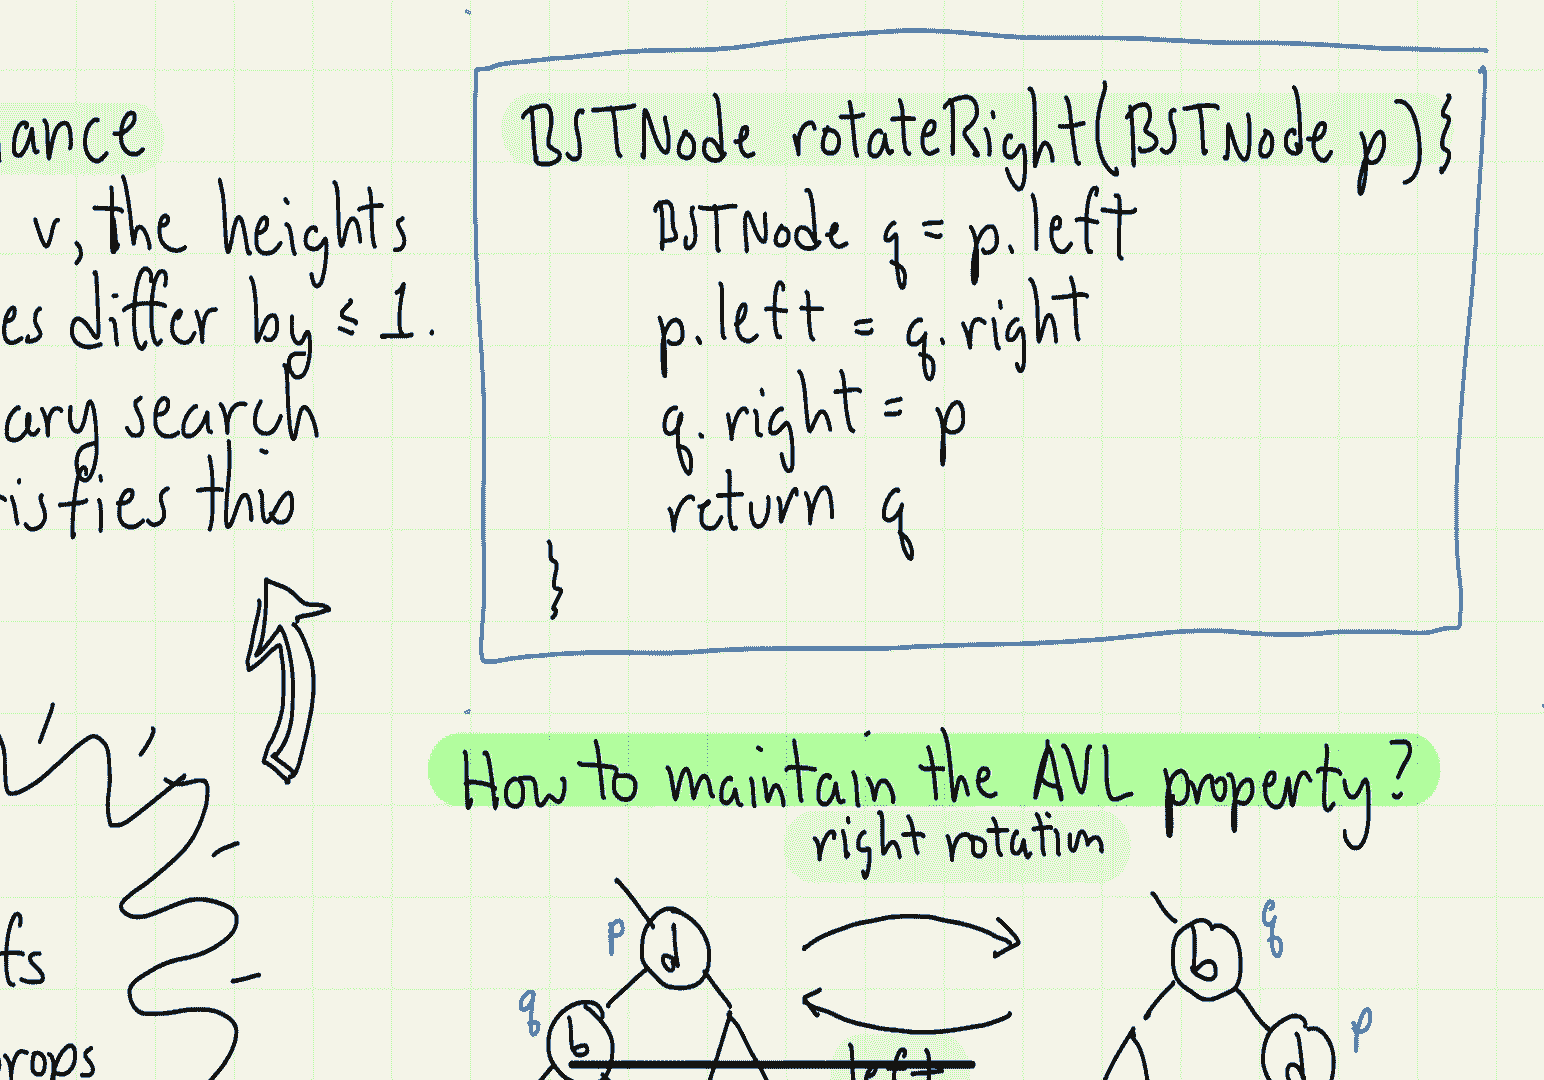 ance
v, the heights
es differ by ≤ 1.
ary search
isfies this
BSTNode rotateRight(BSTNode p){
BSTNode q = p.left
p.left = q.right
q.right = p
return q
}
How to maintain the AVL property?
right rotation
p
d
q
b
left
b
q
d
p
fs
rops